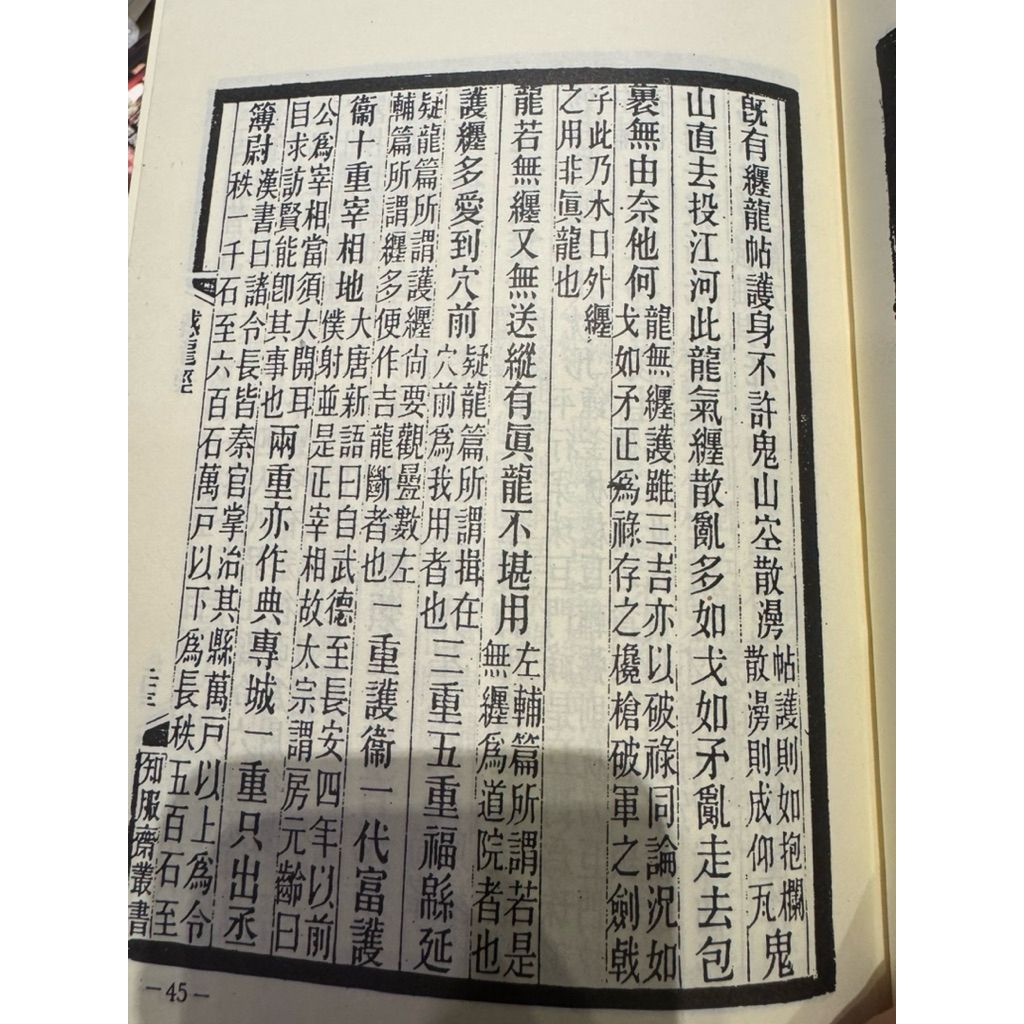 既有纒龍帖護身不許鬼山空散澷帖護則如抱欄散澷則成仰瓦鬼
山直去投江河此龍氣纒散亂多如戈如矛亂走去包
裹無由奈他何龍無纒護雖三吉亦以破祿同論況如戈如矛正爲祿存之欃槍破軍之劍戟
子此乃水口外纒之用非眞龍也
龍若無纒又無送縱有眞龍不堪用左輔篇所謂若是無纒爲道院者也
護纒多愛到穴前疑龍篇所謂揖在穴前爲我用者也三重五重福緜延
疑龍篇所謂護纒尙要觀疊數左輔篇所謂纒多便作吉龍斷者也一重護衞一代富護
衞十重宰相地大唐新語曰自武德至長安四年以前僕射並是正宰相故太宗謂房元齡曰
公爲宰相當須大開耳目求訪賢能卽其事也兩重亦作典專城一重只出丞
簿尉漢書曰諸令長皆秦官掌治其縣萬戶以上爲令秩一千石至六百石萬戶以下爲長秩五百石至
撼龍經
知服齋叢書
—45—